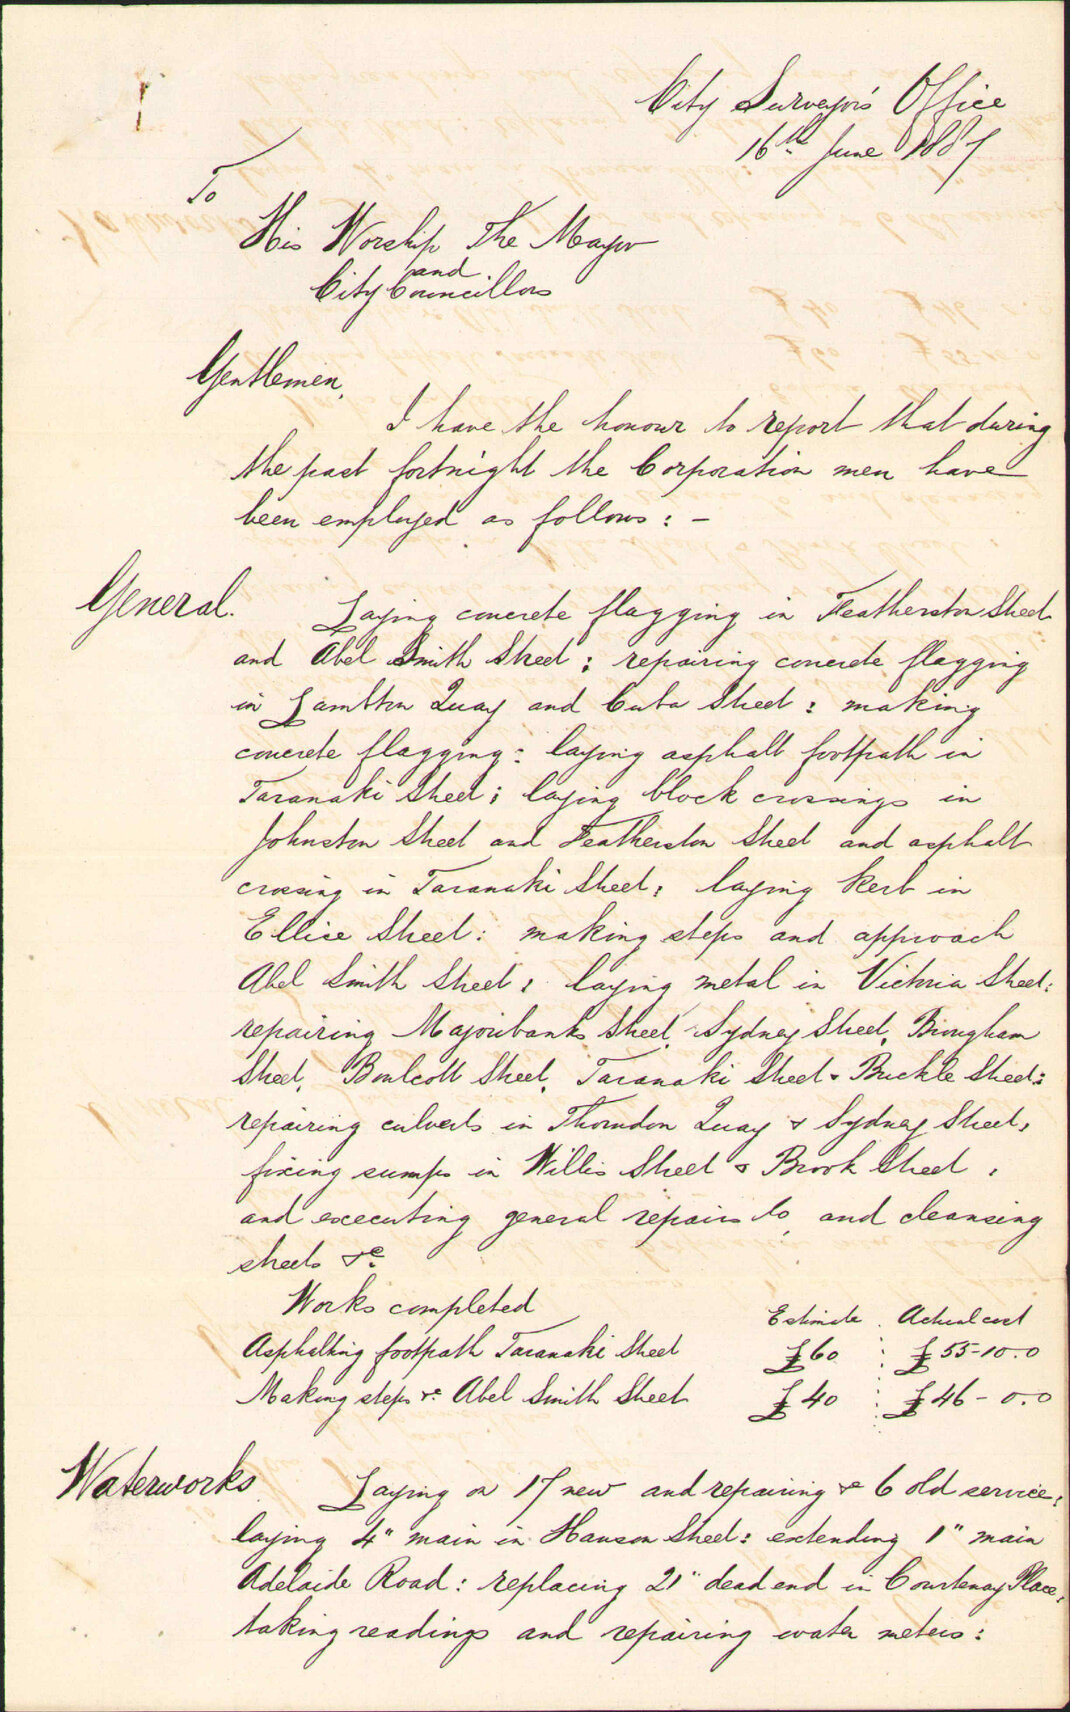 City Surveyor's Office
16th June 1887
To
His Worship The Mayor
and
City Councillors
Gentlemen,
I have the honour to report that during
the past fortnight the Corporation men have
been employed as follows: -
General.
Laying concrete flagging in Featherston Street
and Abel Smith Street; repairing concrete flagging
in Lambton Quay and Cuba Street: making
concrete flagging: laying asphalt footpath in
Taranaki Street; laying block crossings in
Johnston Street and Featherston Street and asphalt
crossing in Taranaki Street; laying kerb in
Ellice Street: making steps and approach
Abel Smith Street; laying metal in Victoria Street:
repairing Majoribanks Street, Sydney Street, Brougham
Street, Boulcott Street, Taranaki Street & Buckle Street:
repairing culverts in Thorndon Quay & Sydney Street,
fixing sumps in Willis Street & Brook Street,
and executing general repairs to, and cleansing
streets &c.
Works completed
Estimate Actual cost
Asphalting footpath Taranaki Street £60 £55-10.0
Making steps &c Abel Smith Street £40 £46-0.0
Waterworks
Laying on 17 new and repairing &c 6 old service;
laying 4" main in Hanson Street: extending 1" main
Adelaide Road: replacing 21" dead end in Courtenay Place;
taking readings and repairing water meters: